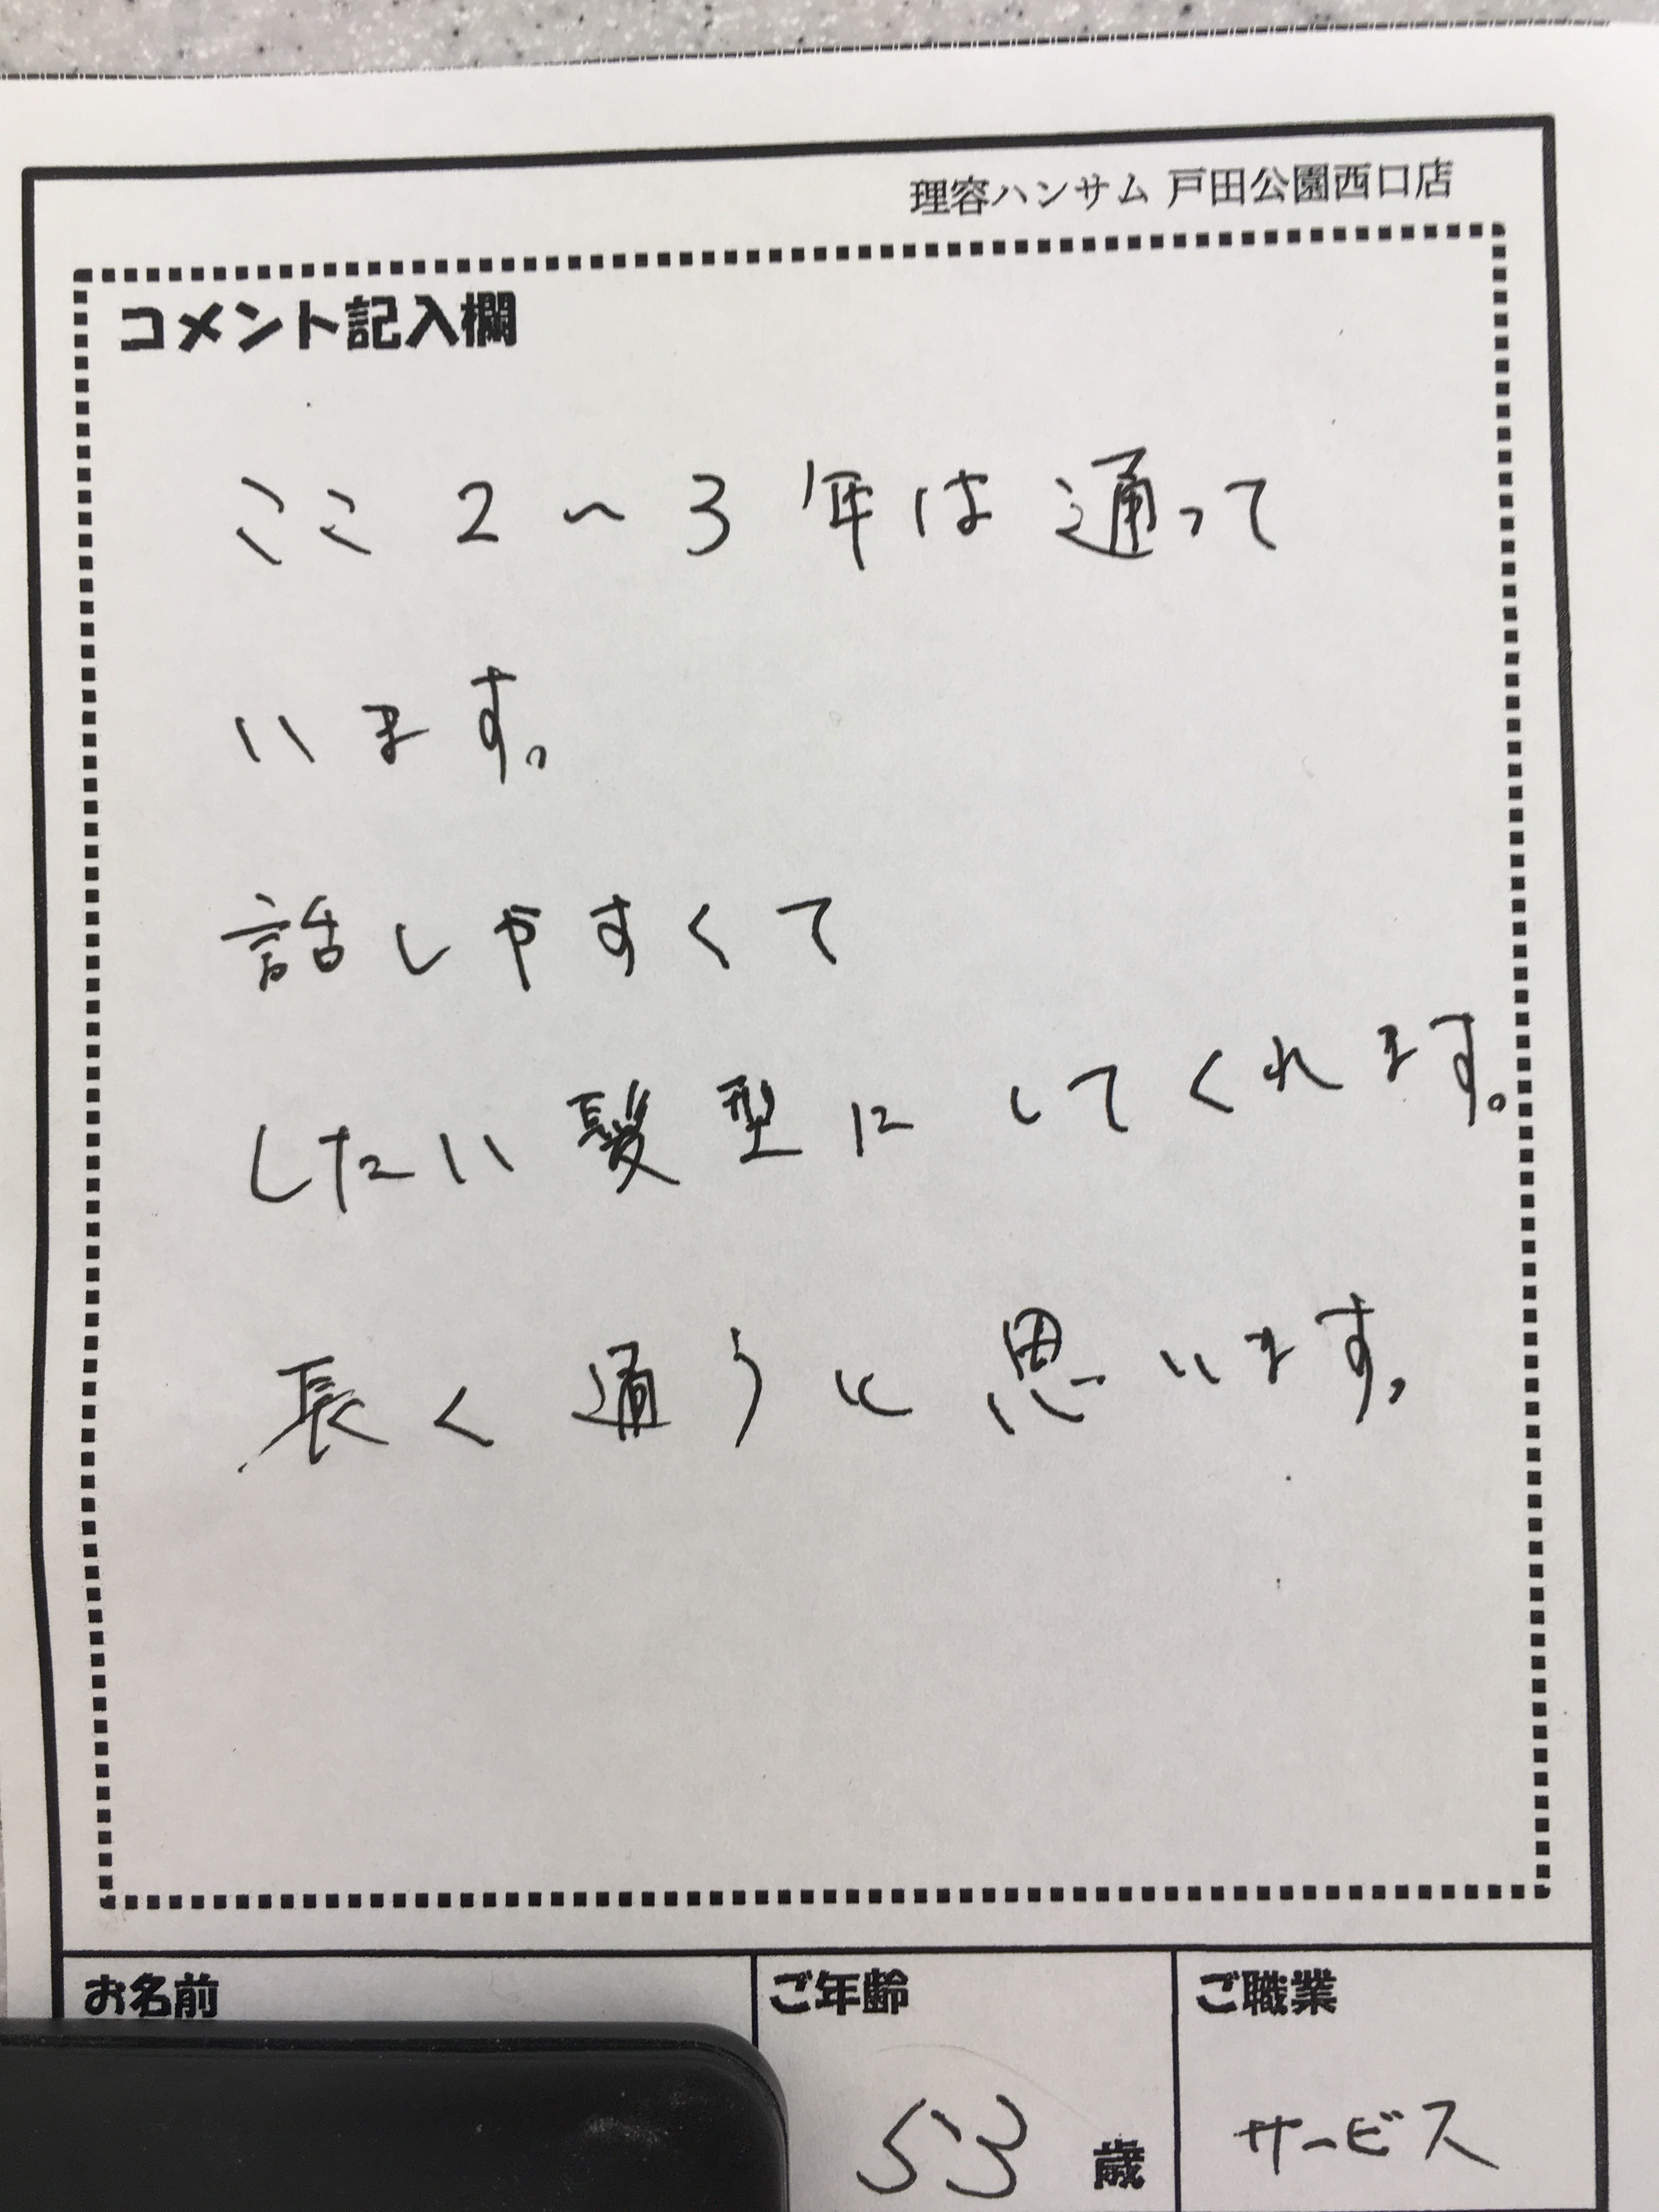 理容ハンサム 戸田公園西口店
コメント記入欄
ここ2〜3年は通って
います。
話しやすくて
したい髪型にしてくれます。
長く通うと思います。
お名前
ご年齢
ご職業
53歳
サービス